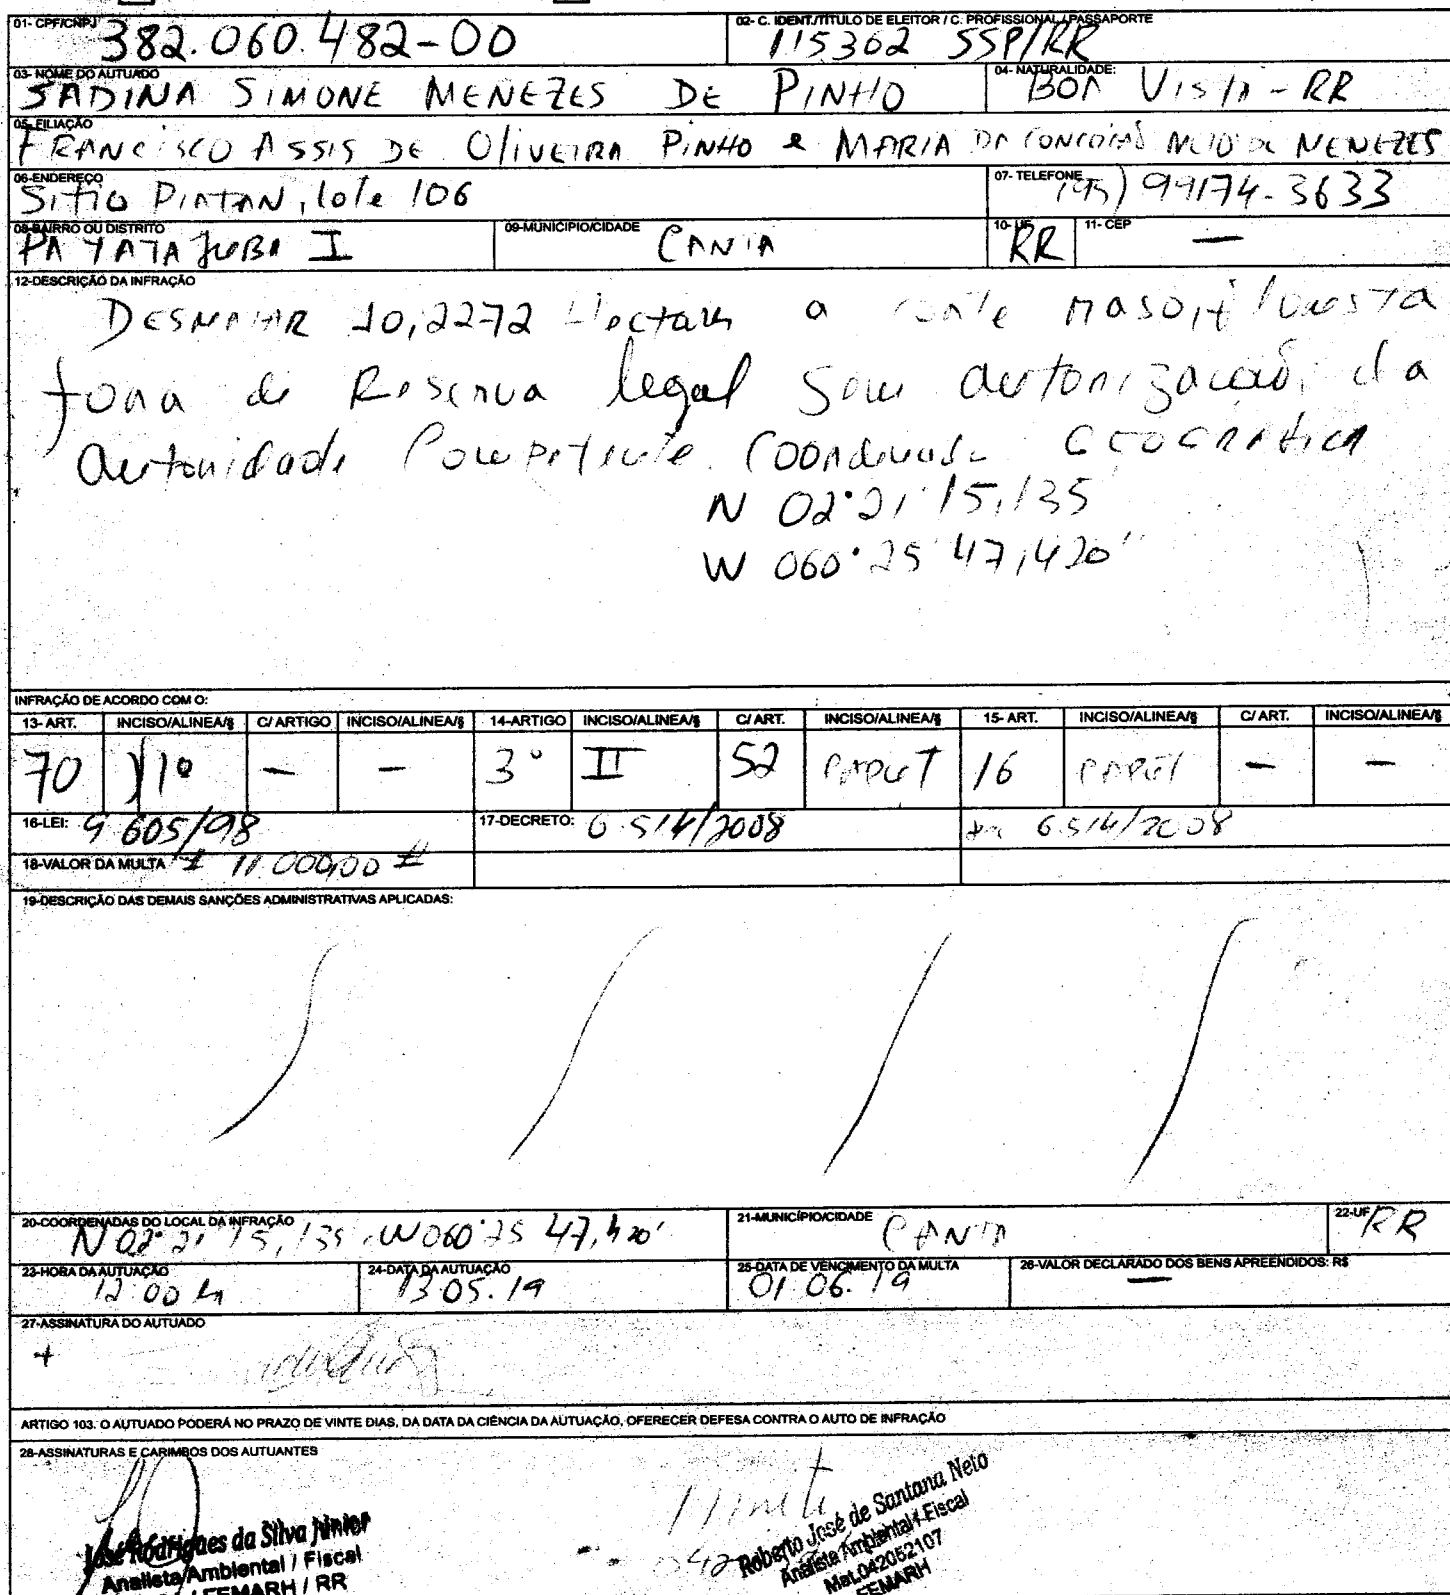 01- CPF/CNPJ 382.060.482-00
02- C. IDENT./TÍTULO DE ELEITOR / C. PROFISSIONAL / PASSAPORTE 115362 SSP/RR
03- NOME DO AUTUADO SADINA SIMONE MENEZES DE PINHO
04- NATURALIDADE: BOA VISTA - RR
05- FILIAÇÃO FRANCISCO ASSIS DE OLIVEIRA PINHO e MARIA DA MENEZES
06-ENDEREÇO SITIO lote 106
07- TELEFONE (95) 99174-3633
08-BAIRRO OU DISTRITO I
09-MUNICÍPIO/CIDADE CANTA
10- UF RR
11- CEP —
12-DESCRIÇÃO DA INFRAÇÃO
DESMATAR 10,2272 Hectares a
fora de Reserva legal Sem autorização da
autoridade Competente. Coordenada GEOGRAFICA
N 02°21'15,135
W 060°25'47,420"
INFRAÇÃO DE ACORDO COM O:
13- ART. INCISO/ALINEA/§ C/ ARTIGO INCISO/ALINEA/§ 14-ARTIGO INCISO/ALINEA/§ C/ ART. INCISO/ALINEA/§ 15- ART. INCISO/ALINEA/§ C/ ART. INCISO/ALINEA/§
70 1º — — 3º II 52 CAPUT 16 — —
16-LEI: 9.605/98
17-DECRETO: 6.514/2008
6.514/2008
18-VALOR DA MULTA # 11.000,00 #
19-DESCRIÇÃO DAS DEMAIS SANÇÕES ADMINISTRATIVAS APLICADAS:
20-COORDENADAS DO LOCAL DA INFRAÇÃO N 02°21'15,135 W 060°25 47,420'
21-MUNICÍPIO/CIDADE CANTA
22-UF RR
23-HORA DA AUTUAÇÃO 12:00 h
24-DATA DA AUTUAÇÃO 13.05.19
25-DATA DE VENCIMENTO DA MULTA 01.06.19
26-VALOR DECLARADO DOS BENS APREENDIDOS: R$ —
27-ASSINATURA DO AUTUADO
+
ARTIGO 103. O AUTUADO PODERÁ NO PRAZO DE VINTE DIAS, DA DATA DA CIÊNCIA DA AUTUAÇÃO, OFERECER DEFESA CONTRA O AUTO DE INFRAÇÃO
28-ASSINATURAS E CARIMBOS DOS AUTUANTES
José Rodrigues da Silva Júnior
Analista Ambiental / Fiscal
FEMARH / RR
Roberto José de Santana Neto
Analista Ambiental / Fiscal
Mat.042052107
FEMARH